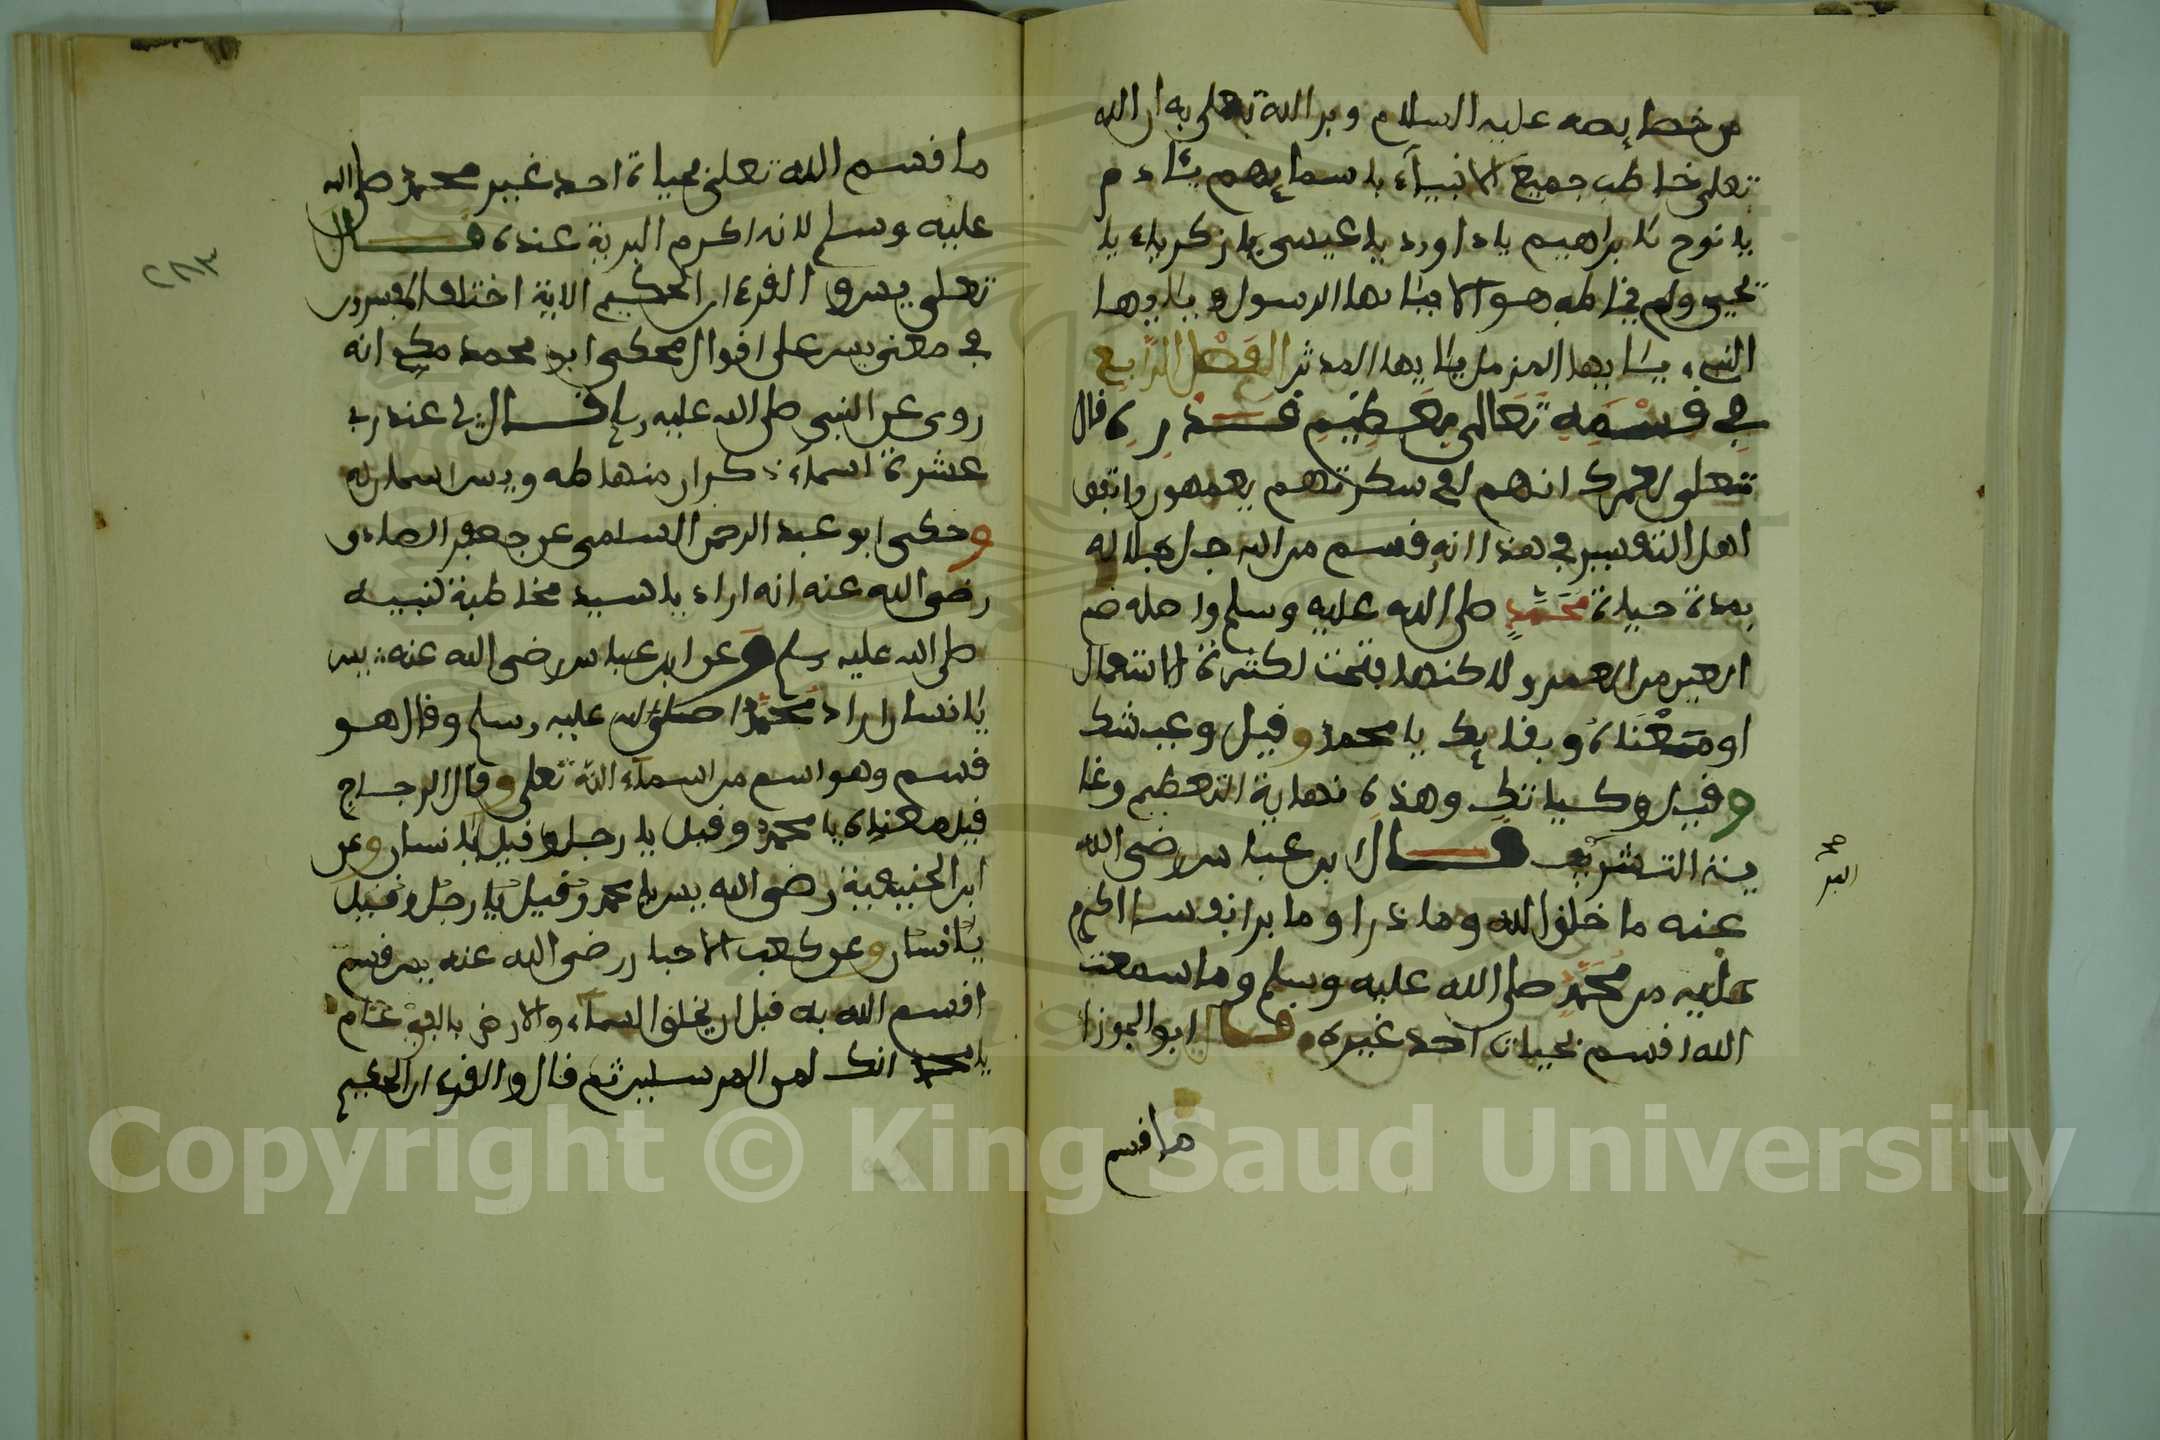 من خصايصه عليه السلام وبر الله تعلى به ان الله
تعلى خاطب جميع الانبياء باسمايهم يئادم
يا نوح يا براهيم يا داوود يا عيسى يا زكرياء يا
يحيى ولم يخاطبه هو الا بيايها الرسول و يايها
النبيء يايها المزمل يايها المدثر الفصل الرابع
في قسمه تعالى بعظيم قدره قال
تعلى لعمرك انهم لفي سكرتهم يعمهون واتفق
اهل التفسير في هذا انه قسم من الله جل جلاله
بمدة حياة محمد صلى الله عليه وسلم واصله ضم
العين من العمر ولاكنها فتحت لكثرة الاستعمال
او معناه وبقايك يا محمد وقيل وعيشك
وقيل وحياتك وهذه نهاية التعظيم وغا
ية التشريف قال ابن عباس رضي الله
عنه ما خلق الله وما ذرا وما برا نفسا اكرم
عليه من محمد صلى الله عليه وسلم وما سمعت
الله اقسم بحياة احد غيره وقال ابو الجوزا
ما قسم
ما قسم الله تعلى بحياة احد غير محمد صلى الله
عليه وسلم لانه اكرم البرية عنده قال
تعلى يس والقرءان الحكيم الاية اختلف المفسرون
في معنى يس على اقوال فحكى ابو محمد مكي انه
روى عن النبي صلى الله عليه وسلم قال لي عند ربي
عشرة اسماء ذكر ان منها طه ويس اسمان له
وحكى ابو عبد الرحمن السلمي عن جعفر الصادق
رضي الله عنه انه اراد يا سيد مخاطبة لنبيه
صلى الله عليه وسلم وعن ابن عباس رضي الله عنه يس
يا انسان اراد محمدا صلى الله عليه وسلم وقال هو
قسم وهو اسم من اسماء الله تعلى وقال الزجاج
قيل معناه يا محمد وقيل يا رجل وقيل يا انسان وعن
ابن الحنيفية رضي الله يس يا محمد وقيل يا رجل وقيل
يا انسان وعن كعب الاحبار رضي الله عنه يس قسم
اقسم الله به قبل ان يخلق السماء والارض بالفي عام
يا محمد انك لمن المرسلين ثم قال والقرءان الحكيم
٢٨٣
Copyright © King Saud University